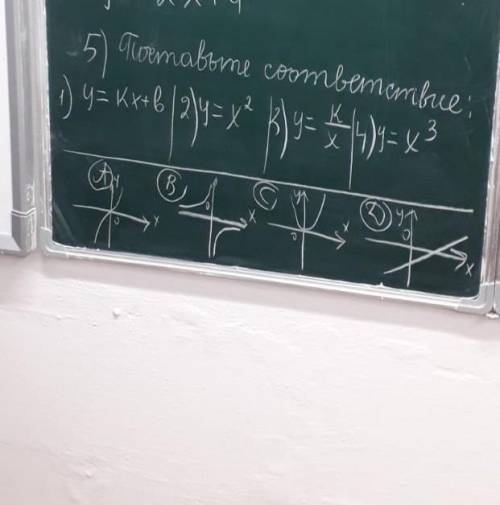 5) Поставьте соответствие:
1) y = kx+b | 2) y = x² | 3) y = k/x | 4) y = x³
A y 0 x B 0 x C y 0 x D y 0 x